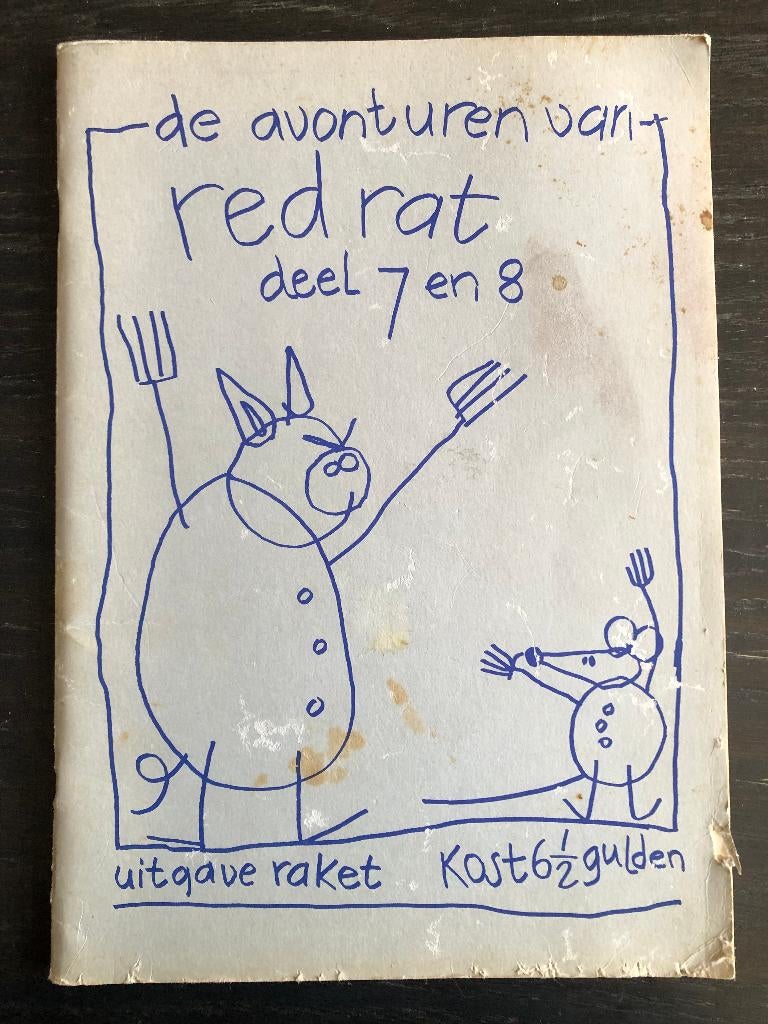 de avonturen van
red rat
deel 7 en 8
uitgave raket
Kost 6½ gulden